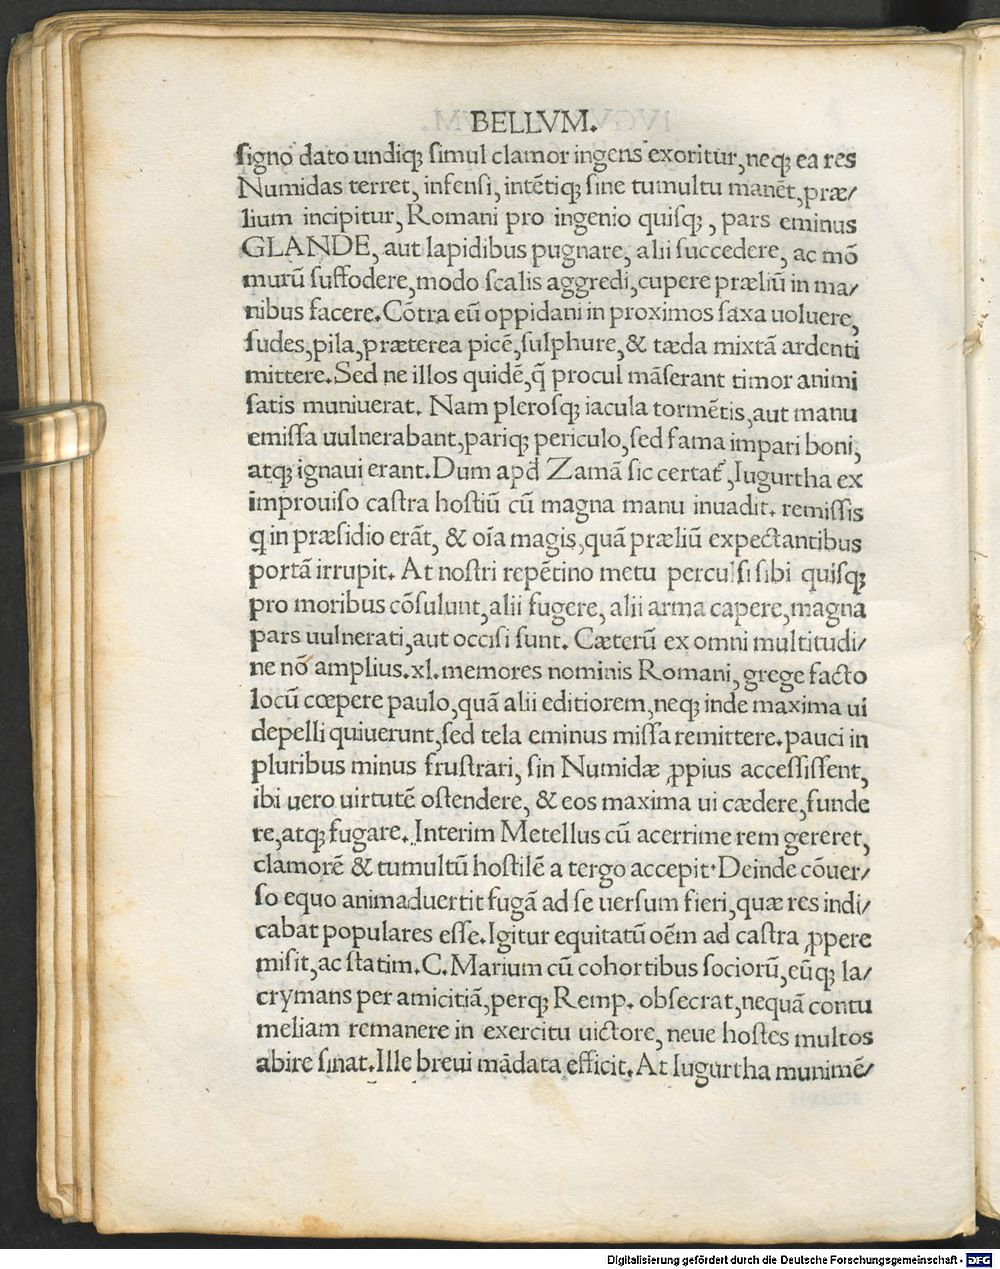 BELLVM.
ſigno dato undiqꝫ ſimul clamor ingens exoritur, neqꝫ ea res
Numidas terret, infenſi, intētiqꝫ ſine tumultu manēt, præ/
lium incipitur, Romani pro ingenio quiſqꝫ, pars eminus
GLANDE, aut lapidibus pugnare, alii ſuccedere, ac mō
murū ſuffodere, modo ſcalis aggredi, cupere præliū in ma/
nibus facere. Cōtra eū oppidani in proximos ſaxa uoluere,
ſudes, pila, præterea picē, ſulphure, & tæda mixtā ardenti
mittere. Sed ne illos quidē, q̄ procul māſerant timor animi
ſatis muniuerat. Nam pleroſqꝫ iacula tormētis, aut manu
emiſſa uulnerabant, pariqꝫ periculo, ſed fama impari boni,
atqꝫ ignaui erant. Dum apd Zamā ſic certat᷑, Iugurtha ex
improuiſo caſtra hoſtiū cū magna manu inuadit. remiſſis
q in præſidio erāt, & oīa magis, quā præliū expectantibus
portā irrupit. At noſtri repētino metu perculſi ſibi quiſqꝫ
pro moribus cōſulunt, alii fugere, alii arma capere, magna
pars uulnerati, aut occiſi ſunt. Cæterū ex omni multitudi/
ne nō amplius. xl. memores nominis Romani, grege facto
locū cœpere paulo, quā alii editiorem, neqꝫ inde maxima ui
depelli quiuerunt, ſed tela eminus miſſa remittere. pauci in
pluribus minus fruſtrari, ſin Numidæ ꝓpius acceſſiſſent,
ibi uero uirtutē oſtendere, & eos maxima ui cædere, funde
re, atqꝫ fugare. Interim Metellus cū acerrime rem gereret,
clamorē & tumultū hoſtilē a tergo accepit. Deinde cōuer/
ſo equo animaduertit fugā ad ſe uerſum fieri, quæ res indi/
cabat populares eſſe. Igitur equitatū oēm ad caſtra ꝓpere
miſit, ac ſtatim. C. Marium cū cohortibus ſociorū, eūqꝫ la/
crymans per amicitiā, perqꝫ Remp. obſecrat, nequā contu
meliam remanere in exercitu uictore, neue hoſtes multos
abire ſinat. Ille breui mādata efficit. At Iugurtha munimē/
Digitalisierung gefördert durch die Deutsche Forschungsgemeinschaft - DFG